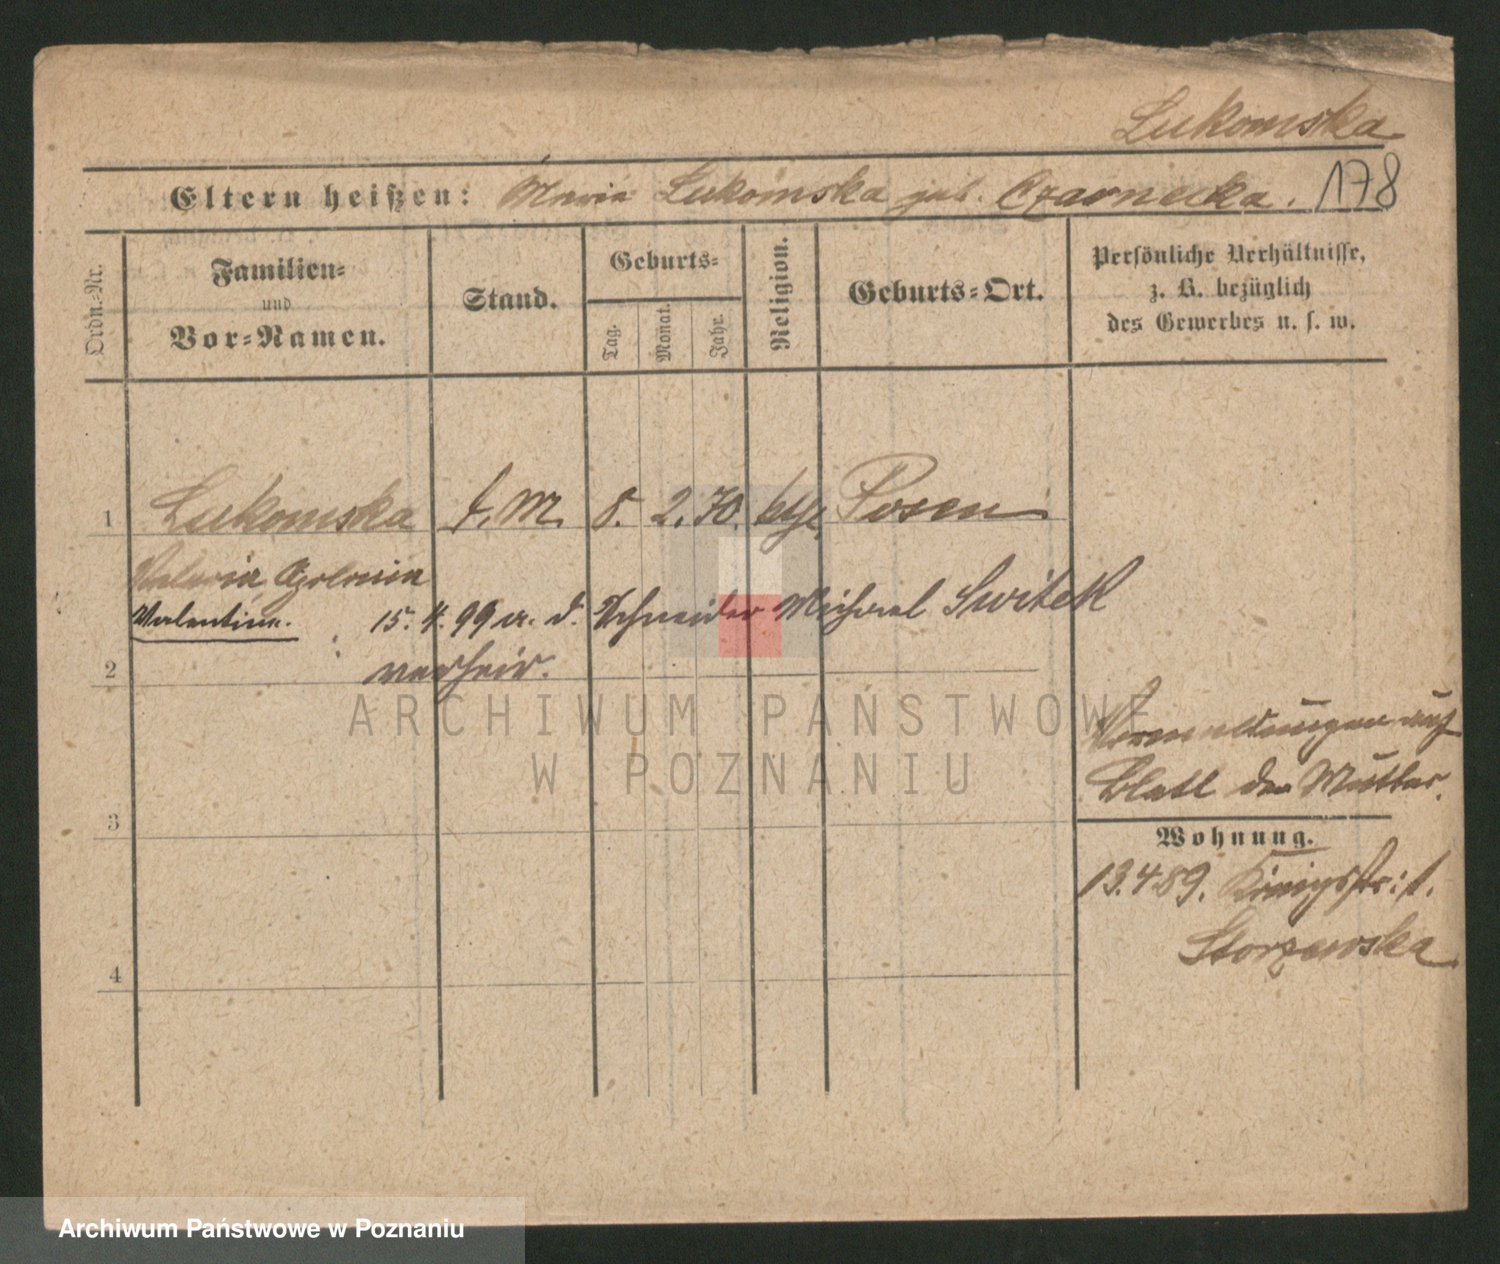 Lukomska
Eltern heißen: Maria Lukomska geb. Czarnecka. 178
Ordn.-Nr.
Familien- und Vor-Namen.
Stand.
Geburts-
Tag.
Monat.
Jahr.
Religion.
Geburts-Ort.
Persönliche Verhältnisse,
z. B. bezüglich
des Gewerbes u. s. w.
1 Lukomska d. M. 8. 2. 70. kth. Posen
Valeria Apolonia
Valentina. 15. 4. 99 a. d. Schneider Michael Switek
2 verheir.
Vermeldungen auf
Blatt der Mutter.
3
Wohnung.
13.4 89. Königsstr: 1.
Storzewska
4
ARCHIWUM PAŃSTWOWE
W POZNANIU
Archiwum Państwowe w Poznaniu